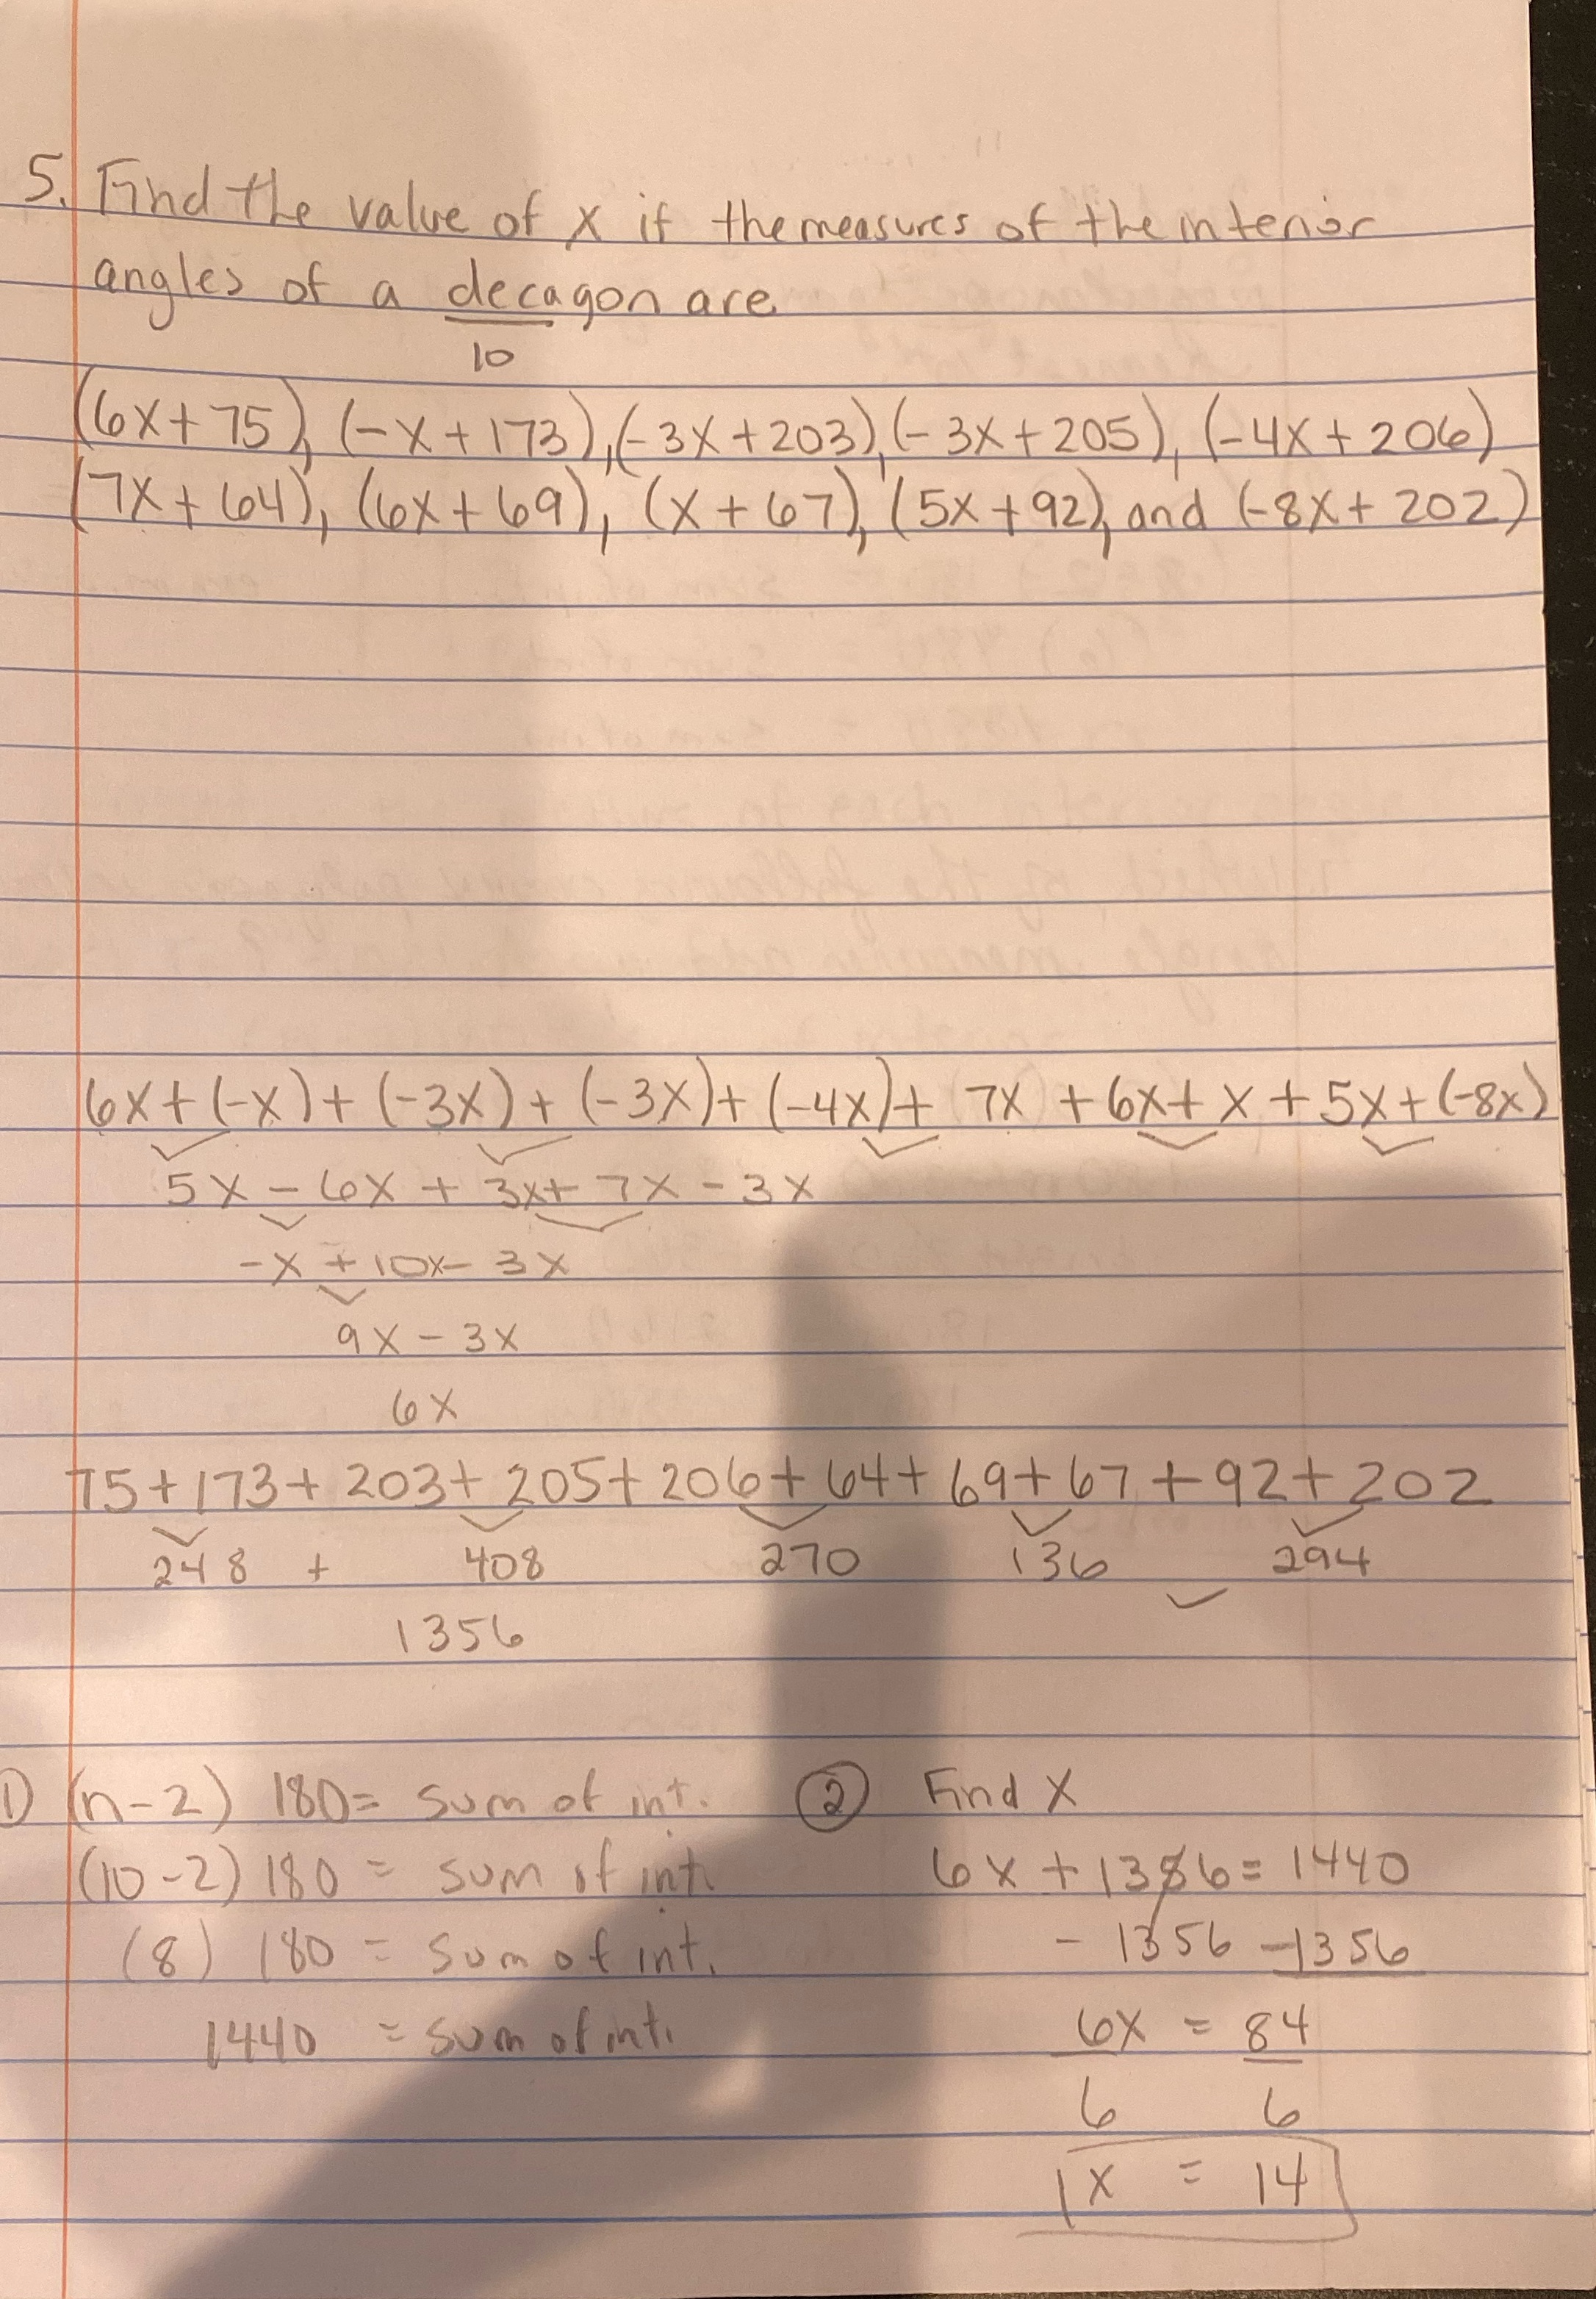 5. Find the value of x if the measures of the interior
angles of a decagon are
10
(6x+75), (-x+173), (-3x+203), (-3x+205), (-4x+206)
(7x+64), (6x+69), (x+67), (5x+92), and (-8x+202)
6x+(-x)+(-3x)+(-3x)+(-4x)+7x+6x+x+5x+(-8x)
5x-6x+3x+7x-3x
-x+10x-3x
9x-3x
6x
75+173+203+205+206+64+69+67+92+202
248 + 408 270 136 294
1356
1) (n-2) 180= sum of int.
(10-2) 180 = sum of int.
(8) 180 = sum of int.
1440 = sum of int.
2 Find X
6x+1356=1440
- 1356 -1356
6x = 84
6 6
x = 14